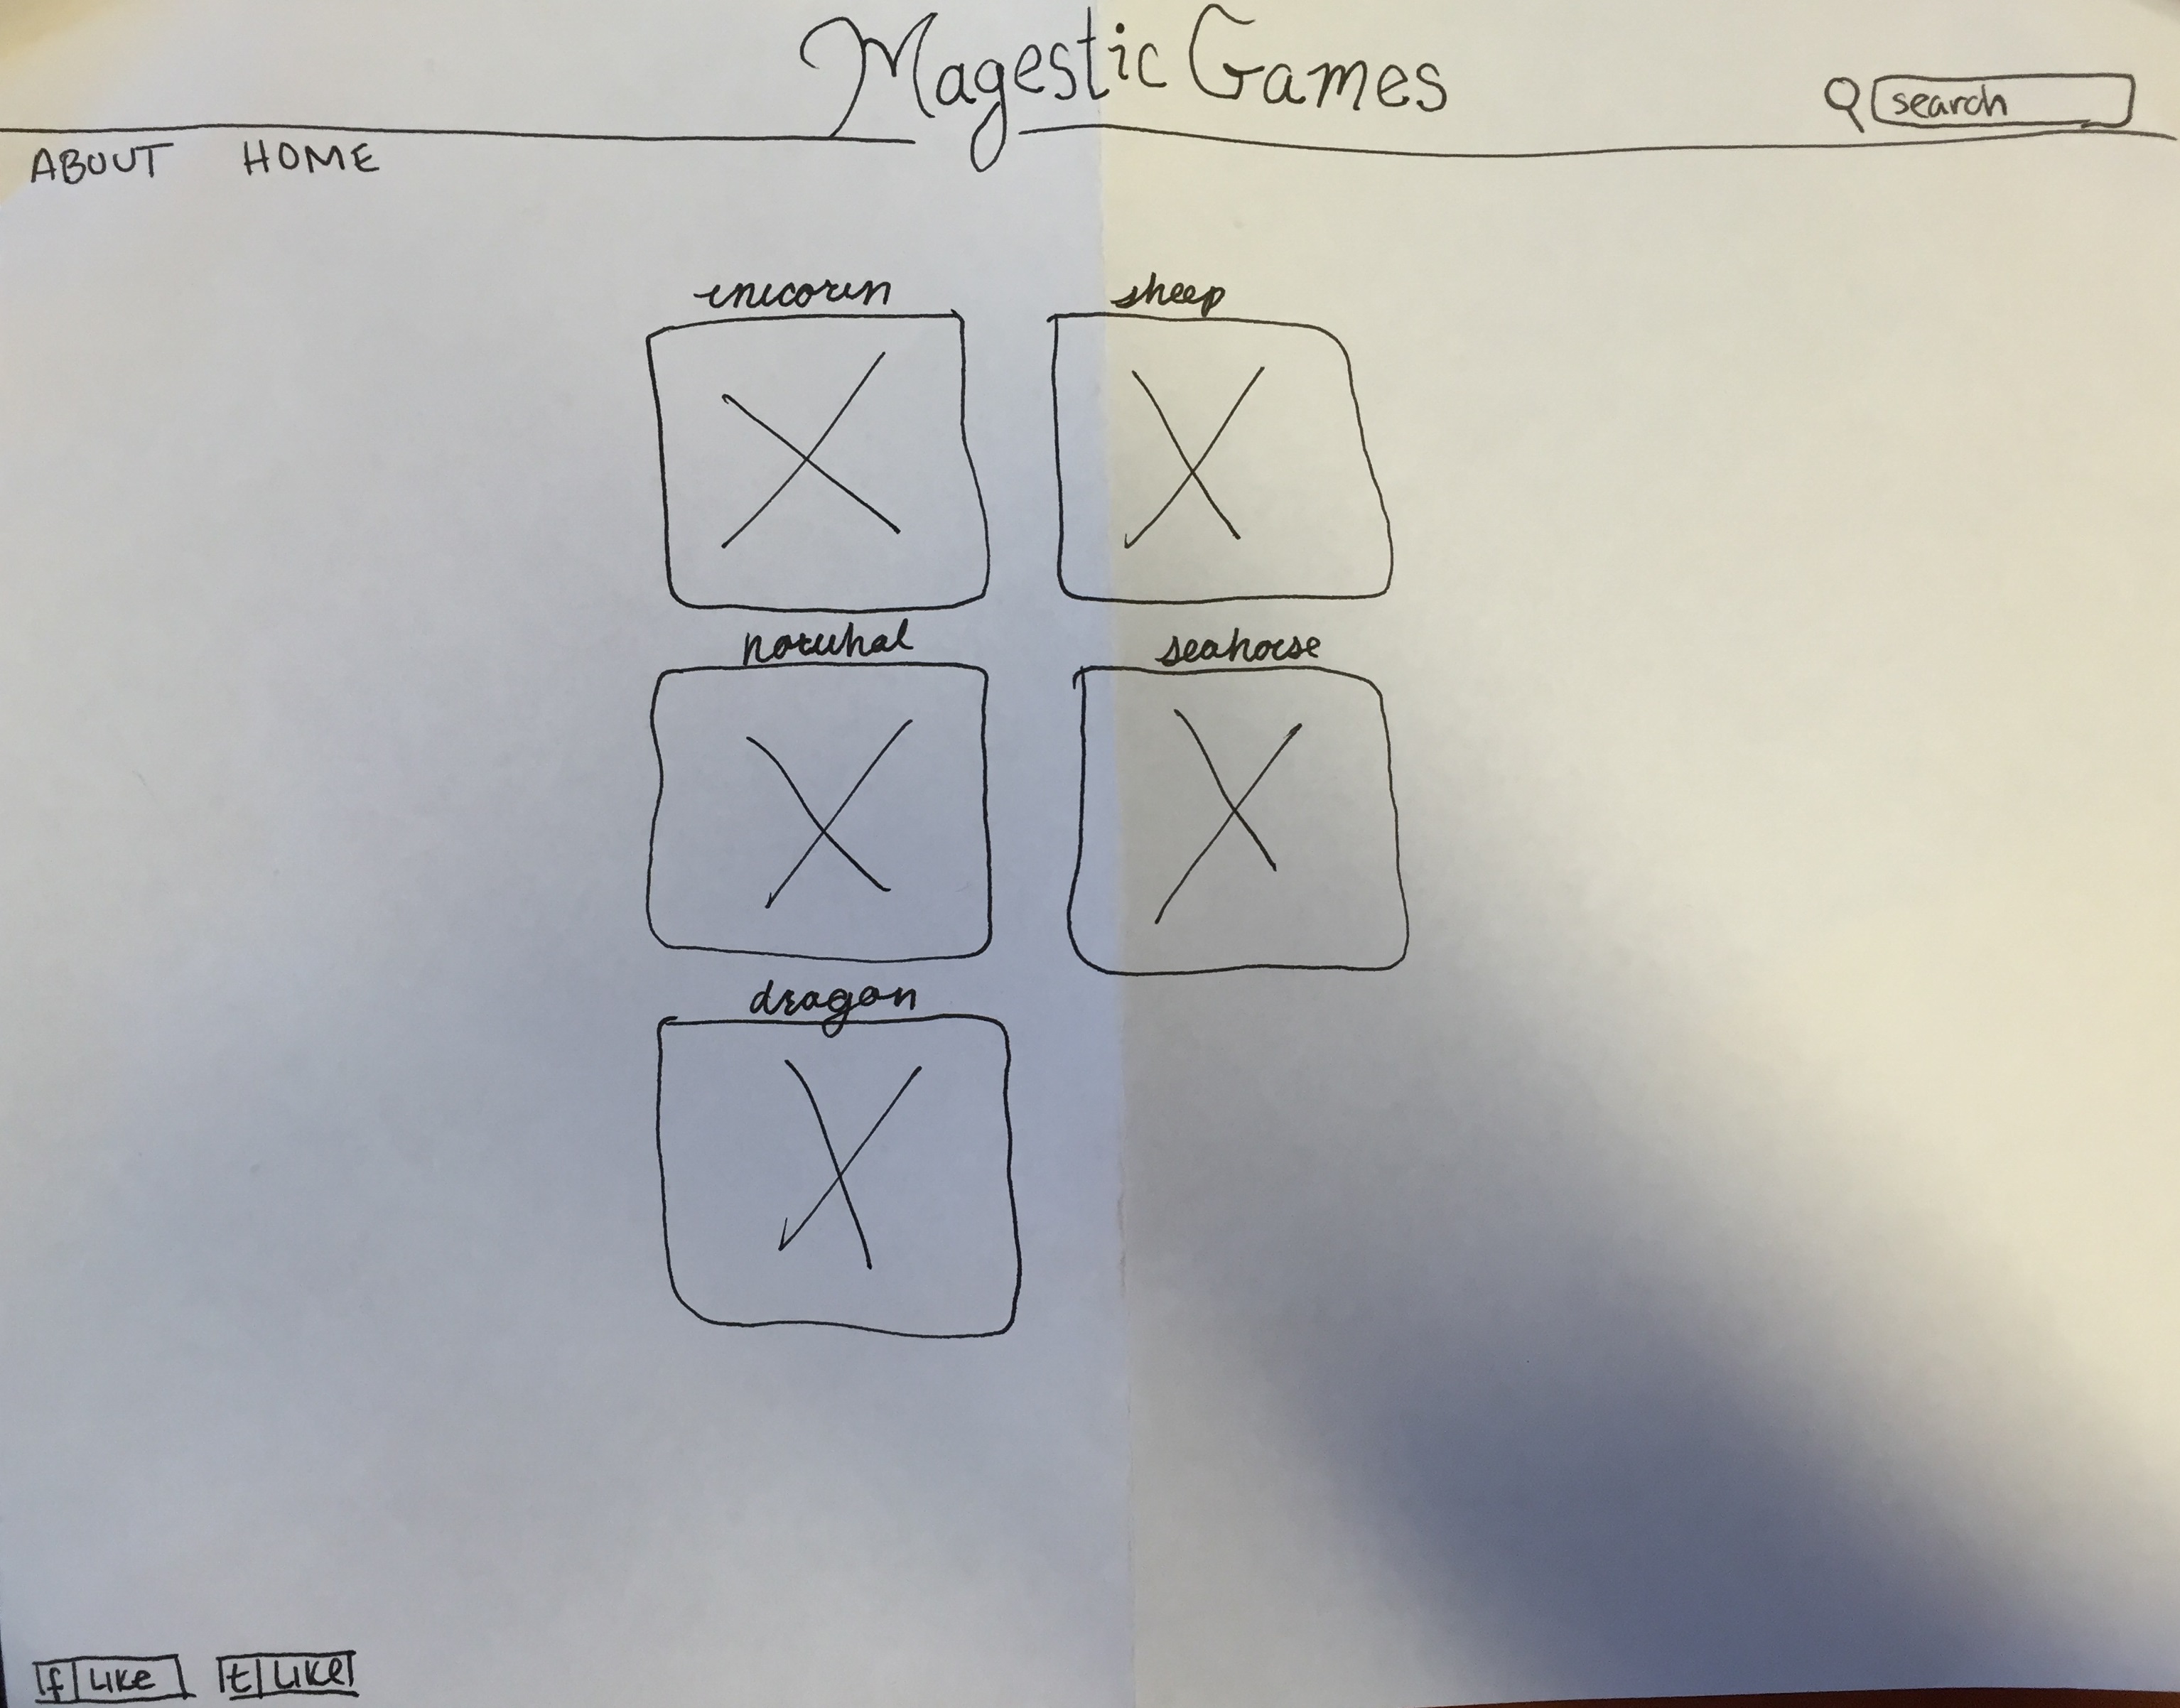 Magestic Games
search
ABOUT HOME
unicorn sheep
narwhal seahorse
dragon
f LIKE t LIKE